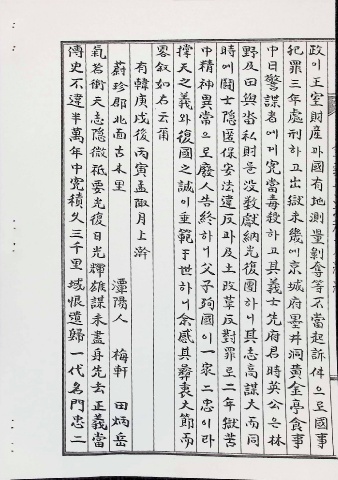 政이王室財産과國有地測量剝奪等不當起訴件으로國事
犯罪三年處刑하고出獄未幾에京城府墨井洞黃金亭食事
中日警謀者에게究當毒殺하고其義士先府君時英公은林
野及田與畓私財를沒數獻納光復團하니其志高謀大而同
時에鬪士隱匿保安法違反과及土改革反對罪로二年獄苦
中精神異常으로廢人告終하니父子殉國이一家二忠이라
撑天之義와復國之誠이垂範于世하니余感其彛衷大節而
畧敘如右云甭
有韓庚戌後丙寅孟陬月上澣
蔚珍郡北面古未里
潭陽人 梅軒 田炳岳
氣若衝天志隱微 祗要光復日光輝 雄謀未盡身先去 正義當
傳史不違 半萬年中寃積久 三千里域恨遺歸 一代名門忠二